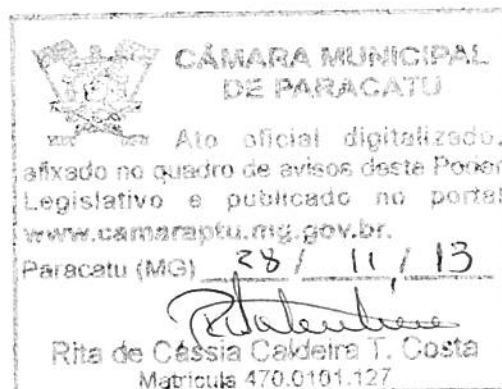 CÂMARA MUNICIPAL
DE PARACATU
Ato oficial digitalizado,
afixado no quadro de avisos deste Poder
Legislativo e publicado no portal
www.camaraptu.mg.gov.br.
Paracatu (MG) 28 / 11 / 13
Rita de Cássia Caldeira T. Costa
Matrícula 470.0101.127